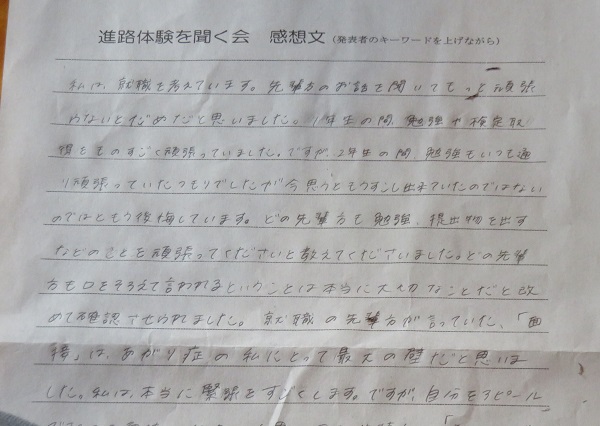 進路体験を聞く会　感想文（発表者のキーワードを上げながら）
私は、就職を考えています。先輩方のお話を聞いてもっと頑張
らないとだめだと思いました。1年生の間、勉強や検定取
得をものすごく頑張っていました。ですが、2年生の間、勉強もいつも通
り頑張っていたつもりでしたが今思うともうすこし出来ていたのではない
のではともう後悔しています。どの先輩方も勉強、提出物を出す
などのことを頑張ってくださいと教えてくださいました。どの先輩
方も口をそろえて言われるということは本当に大切なことだと改
めて確認させられました。就職の先輩方が言っていた、「面
接」は、あがり症の私にとって最大の壁だと思いま
した。私は、本当に緊張をすごくします。ですが、自分をアピール